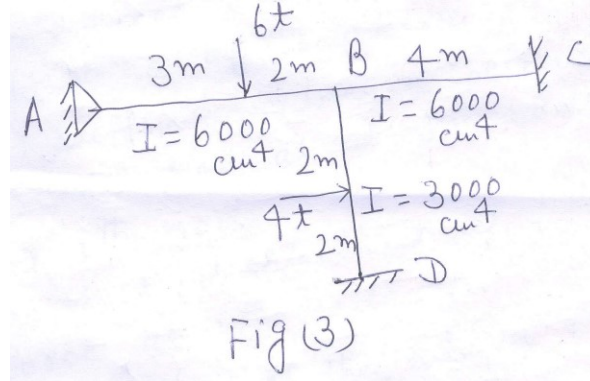 6t
3m 2m B 4m C
A
I = 6000 cm4
I = 6000 cm4
2m
4t
I = 3000 cm4
2m
D
Fig (3)